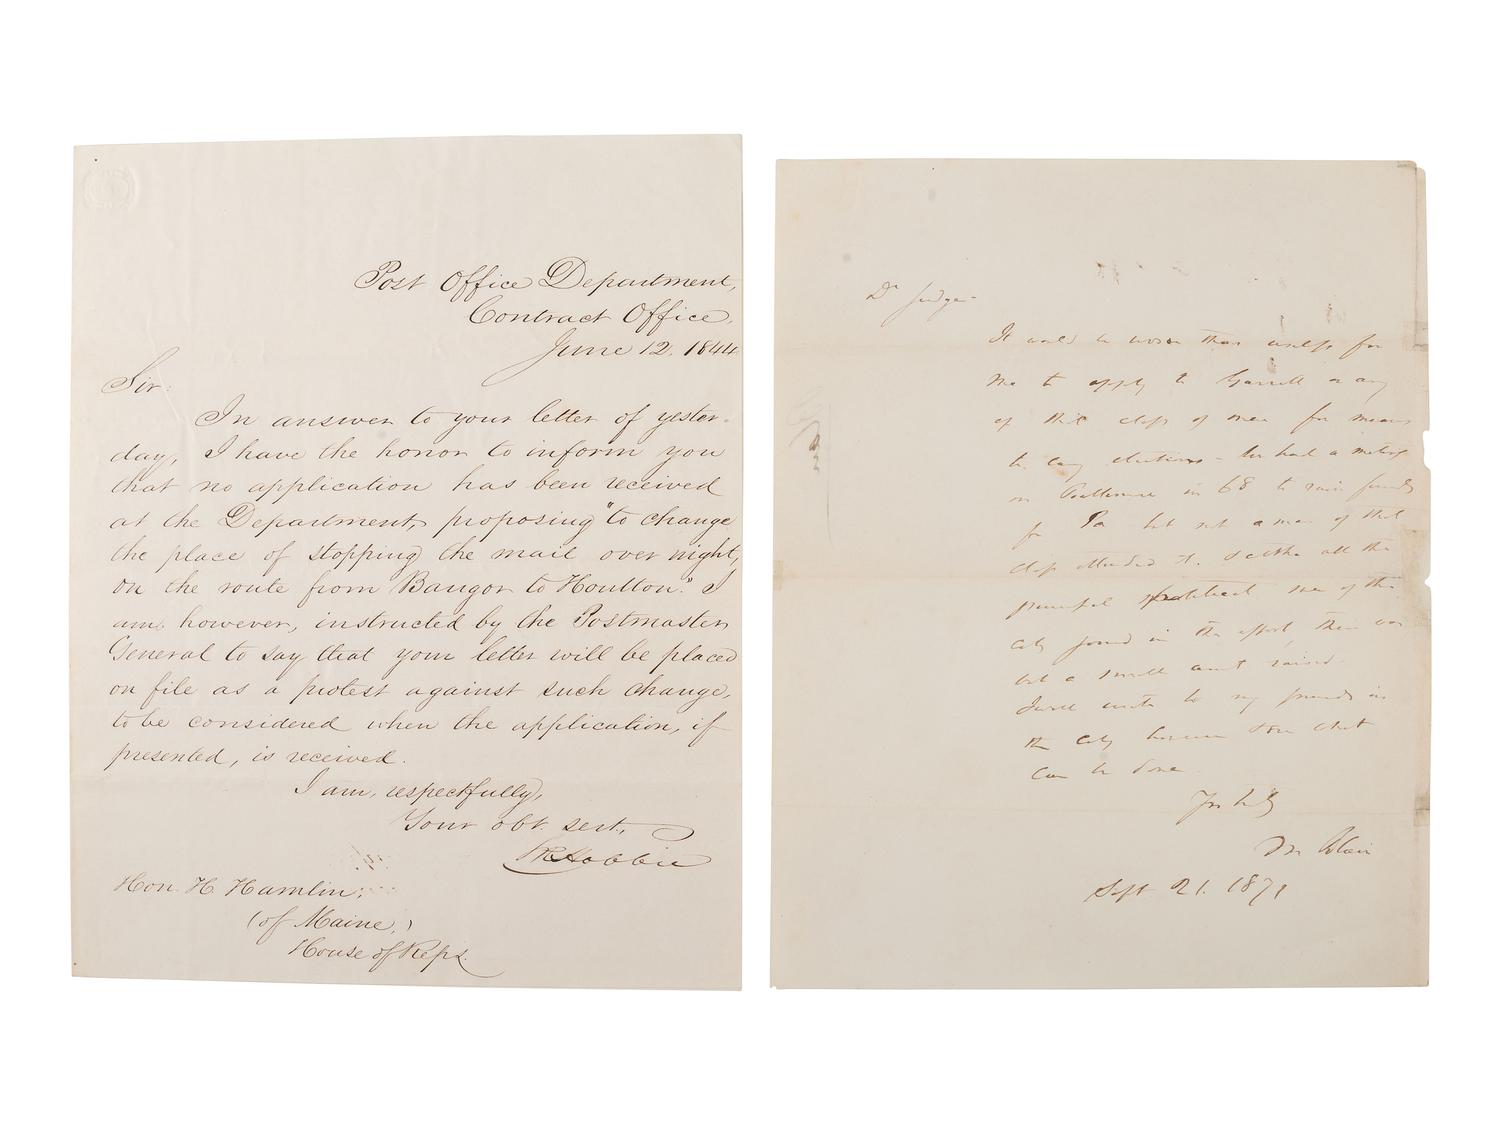 Post Office Department,
Contract Office,
June 12. 1844
Sir:
In answer to your letter of yester-
day, I have the honor to inform you
that no application has been received
at the Department, proposing "to change
the place of stopping the mail over night,
on the route from Bangor to Houlton." I
am, however, instructed by the Postmaster
General to say that your letter will be placed
on file as a protest against such change,
to be considered when the application, if
presented, is received.
I am, respectfully,
Your obt. sert.
S R Hobbie
Hon. H. Hamlin,
(of Maine,)
House of Reps.
Dr Judge
It would be worse than useless for
me to apply to Garrett or any
of that class of men for means
to carry elections - We had a meeting
in Baltimore in 68 to raise funds
for Pa but not a man of that
class attended it. & altho all the
principal political men of the
city joined in the effort, there was
but a small amt raised.
I will write to my friends in
the city however & see what
can be done.
Yrs
M Blair
Sept 21. 1871